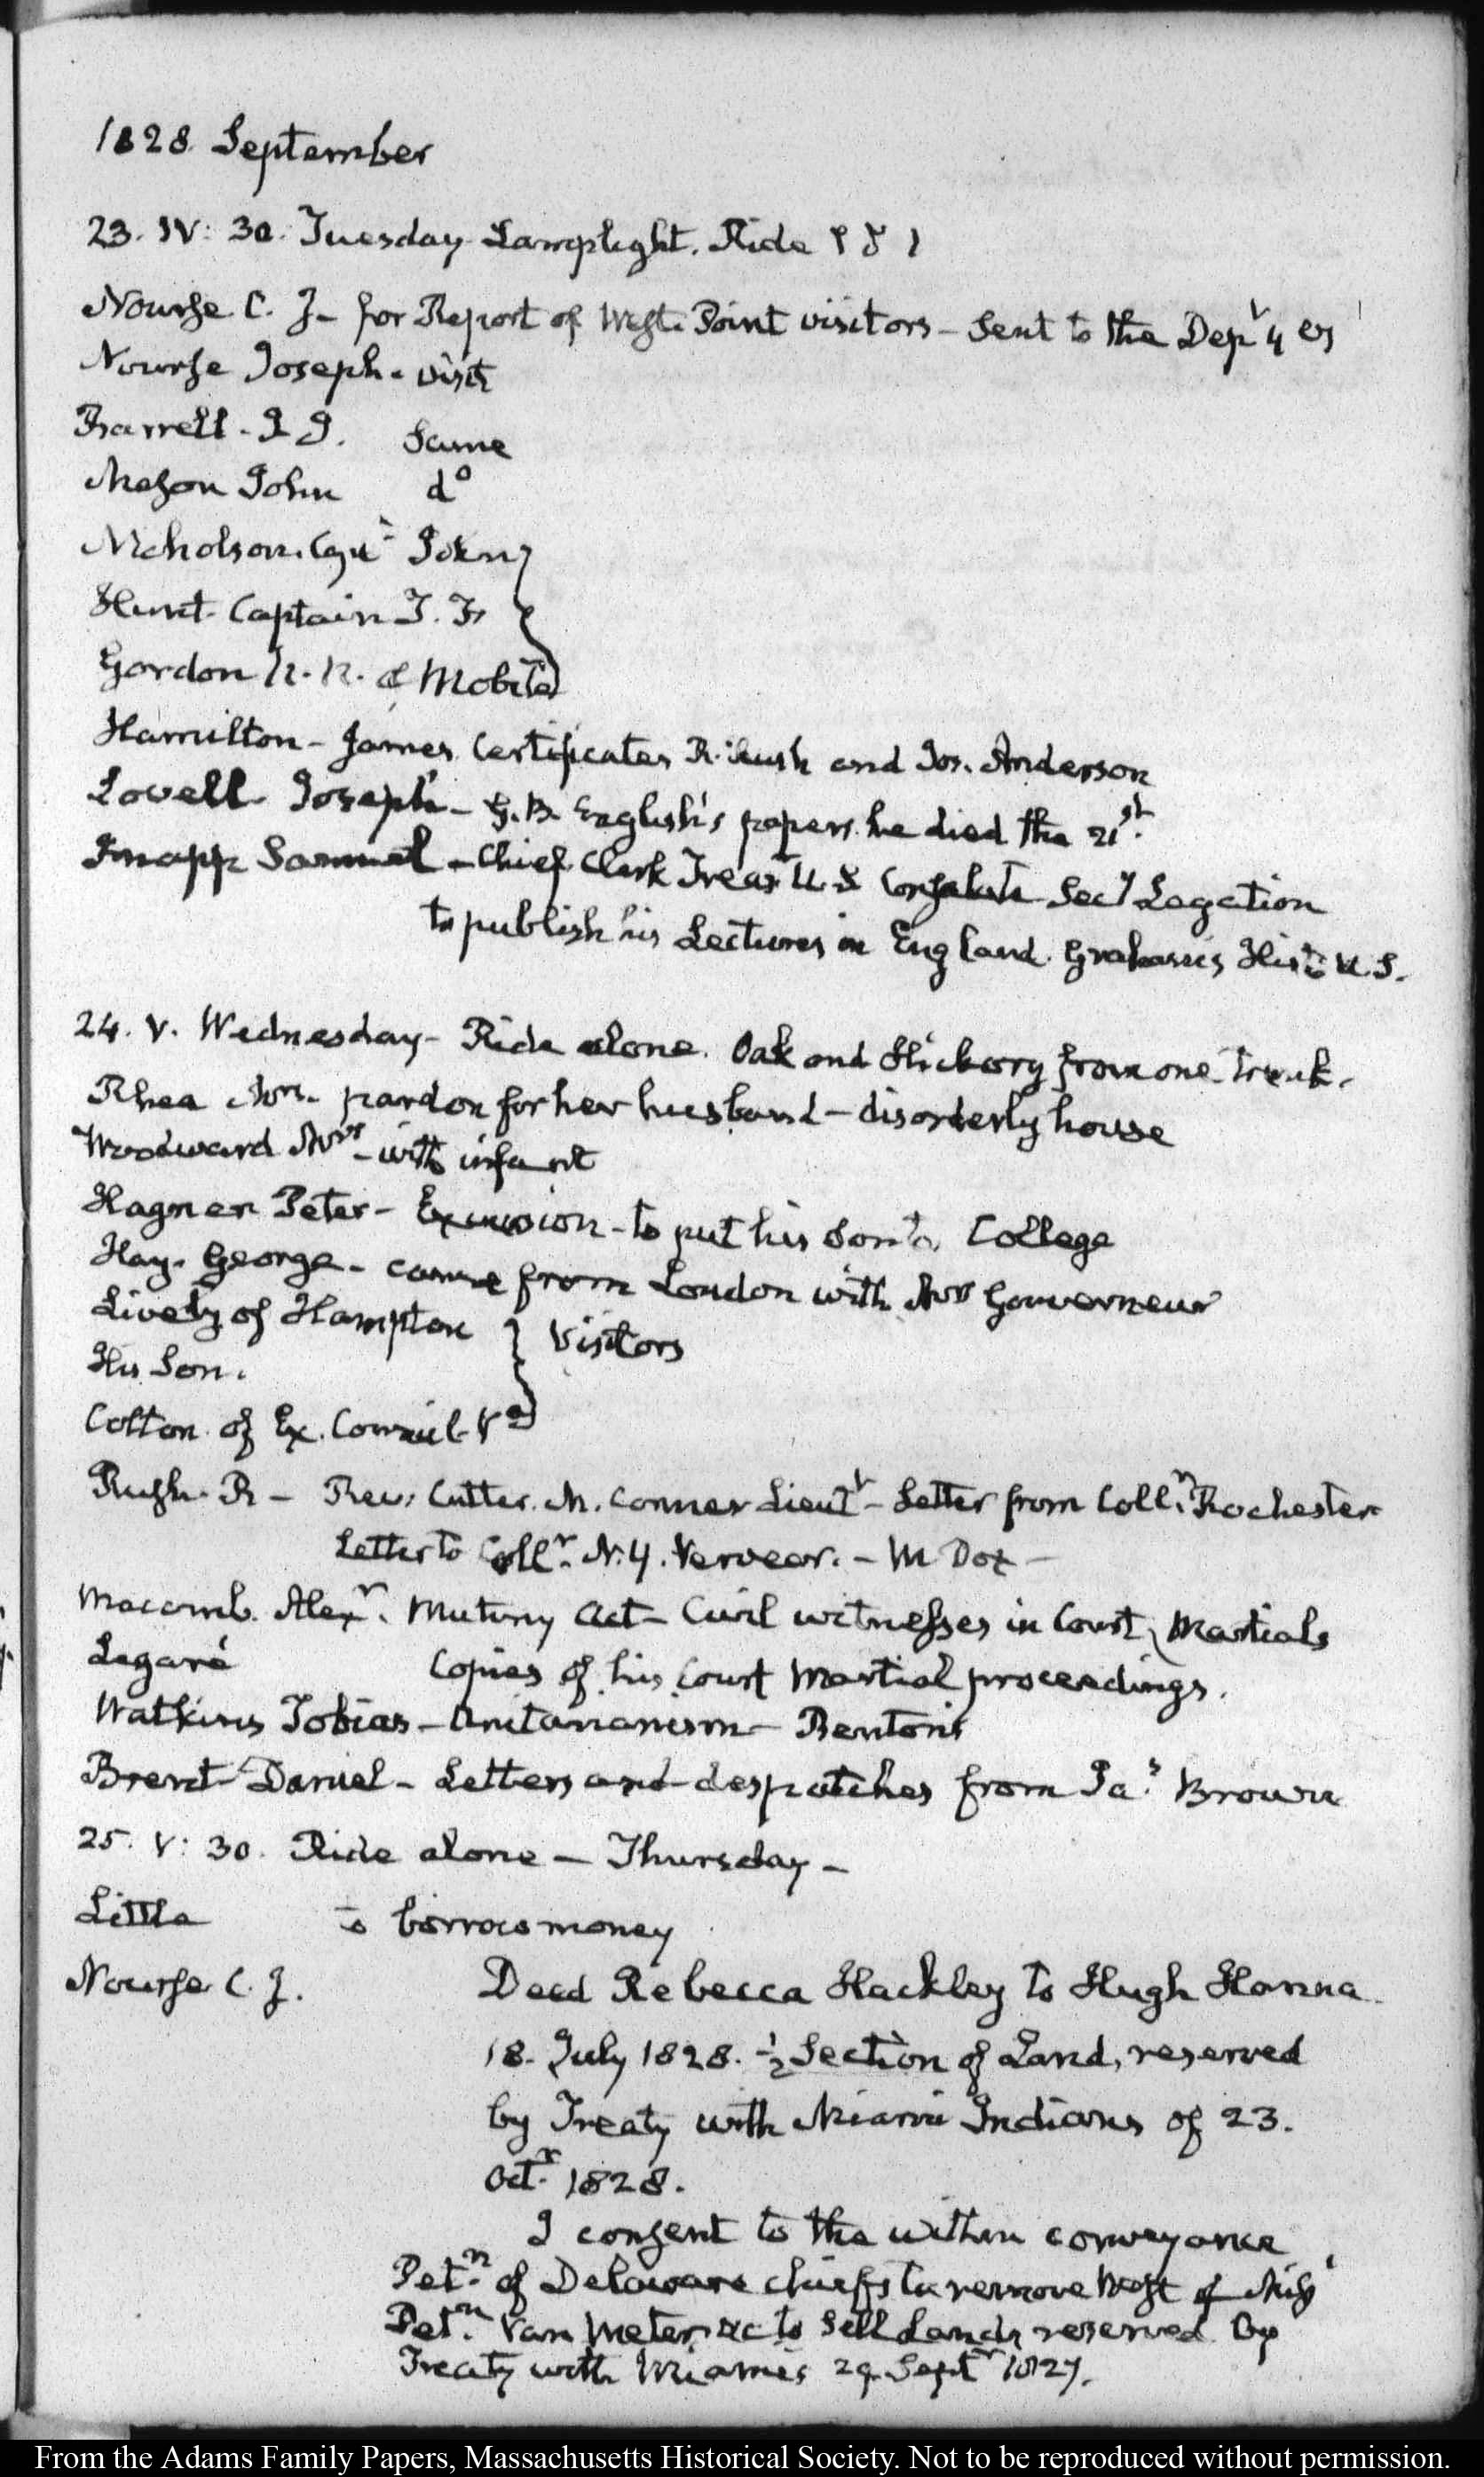 1828 September
23. IV: 30. Tuesday Lamplight. Ride
Nourse C. J- for Report of West Point visitors - Sent to the Dept of
Nourse Joseph. visit
Barrell. I I. Same
Mason John do
Nicholson. Capt. John
Hunt. Captain T. F.
Gordon of Mobile
Hamilton - James Certificates R. Rush and Jos. Anderson
Lovell. Joseph - G. B. English's papers. he died the 21st.
Knapp Samuel - Chief Clerk Treasy U. S Consulate Secy Legation
to publish his Lectures in England. Graham's Hist: U. S.
24. V. Wednesday - Ride alone. Oak and Hickory from one trunk.
Rhea Mrs. pardon for her husband - disorderly house
Woodward Mrs - with infant
Hagner Peter - Excursion - to put his Son to College
Hay. George - came from London with Mrs Gouverneur
Lively of Hampton } Visitors
His Son.
Colton of Ex. Council Va
Rush. R - Rev: Cutter. M. Conner Lieut - Letter from Collr. Rochester
Letter to Collr. N. Y. Verveer. - M Dox -
Macomb. Alexr. Mutiny Act - Civil witnesses in Court Martials
Legaré Copies of his Court Martial proceedings.
Watkins Tobias - Unitarianism - Benton's
Brent Daniel - Letters and despatches from Jas. Brown
25. V: 30. Ride alone - Thursday -
Little to borrow money
Nourse C. J. Deed Rebecca Hackley to Hugh Hanna
18. July 1828. ½ Section of Land, reserved
by Treaty with Miami Indians of 23.
Octr. 1828.
I consent to the within conveyance
Petn. of Delaware chiefs to remove West of
Petn. Van Meter &c to Sell Lands reserved by
Treaty with Miamis 29. Septr 1827.
From the Adams Family Papers, Massachusetts Historical Society. Not to be reproduced without permission.